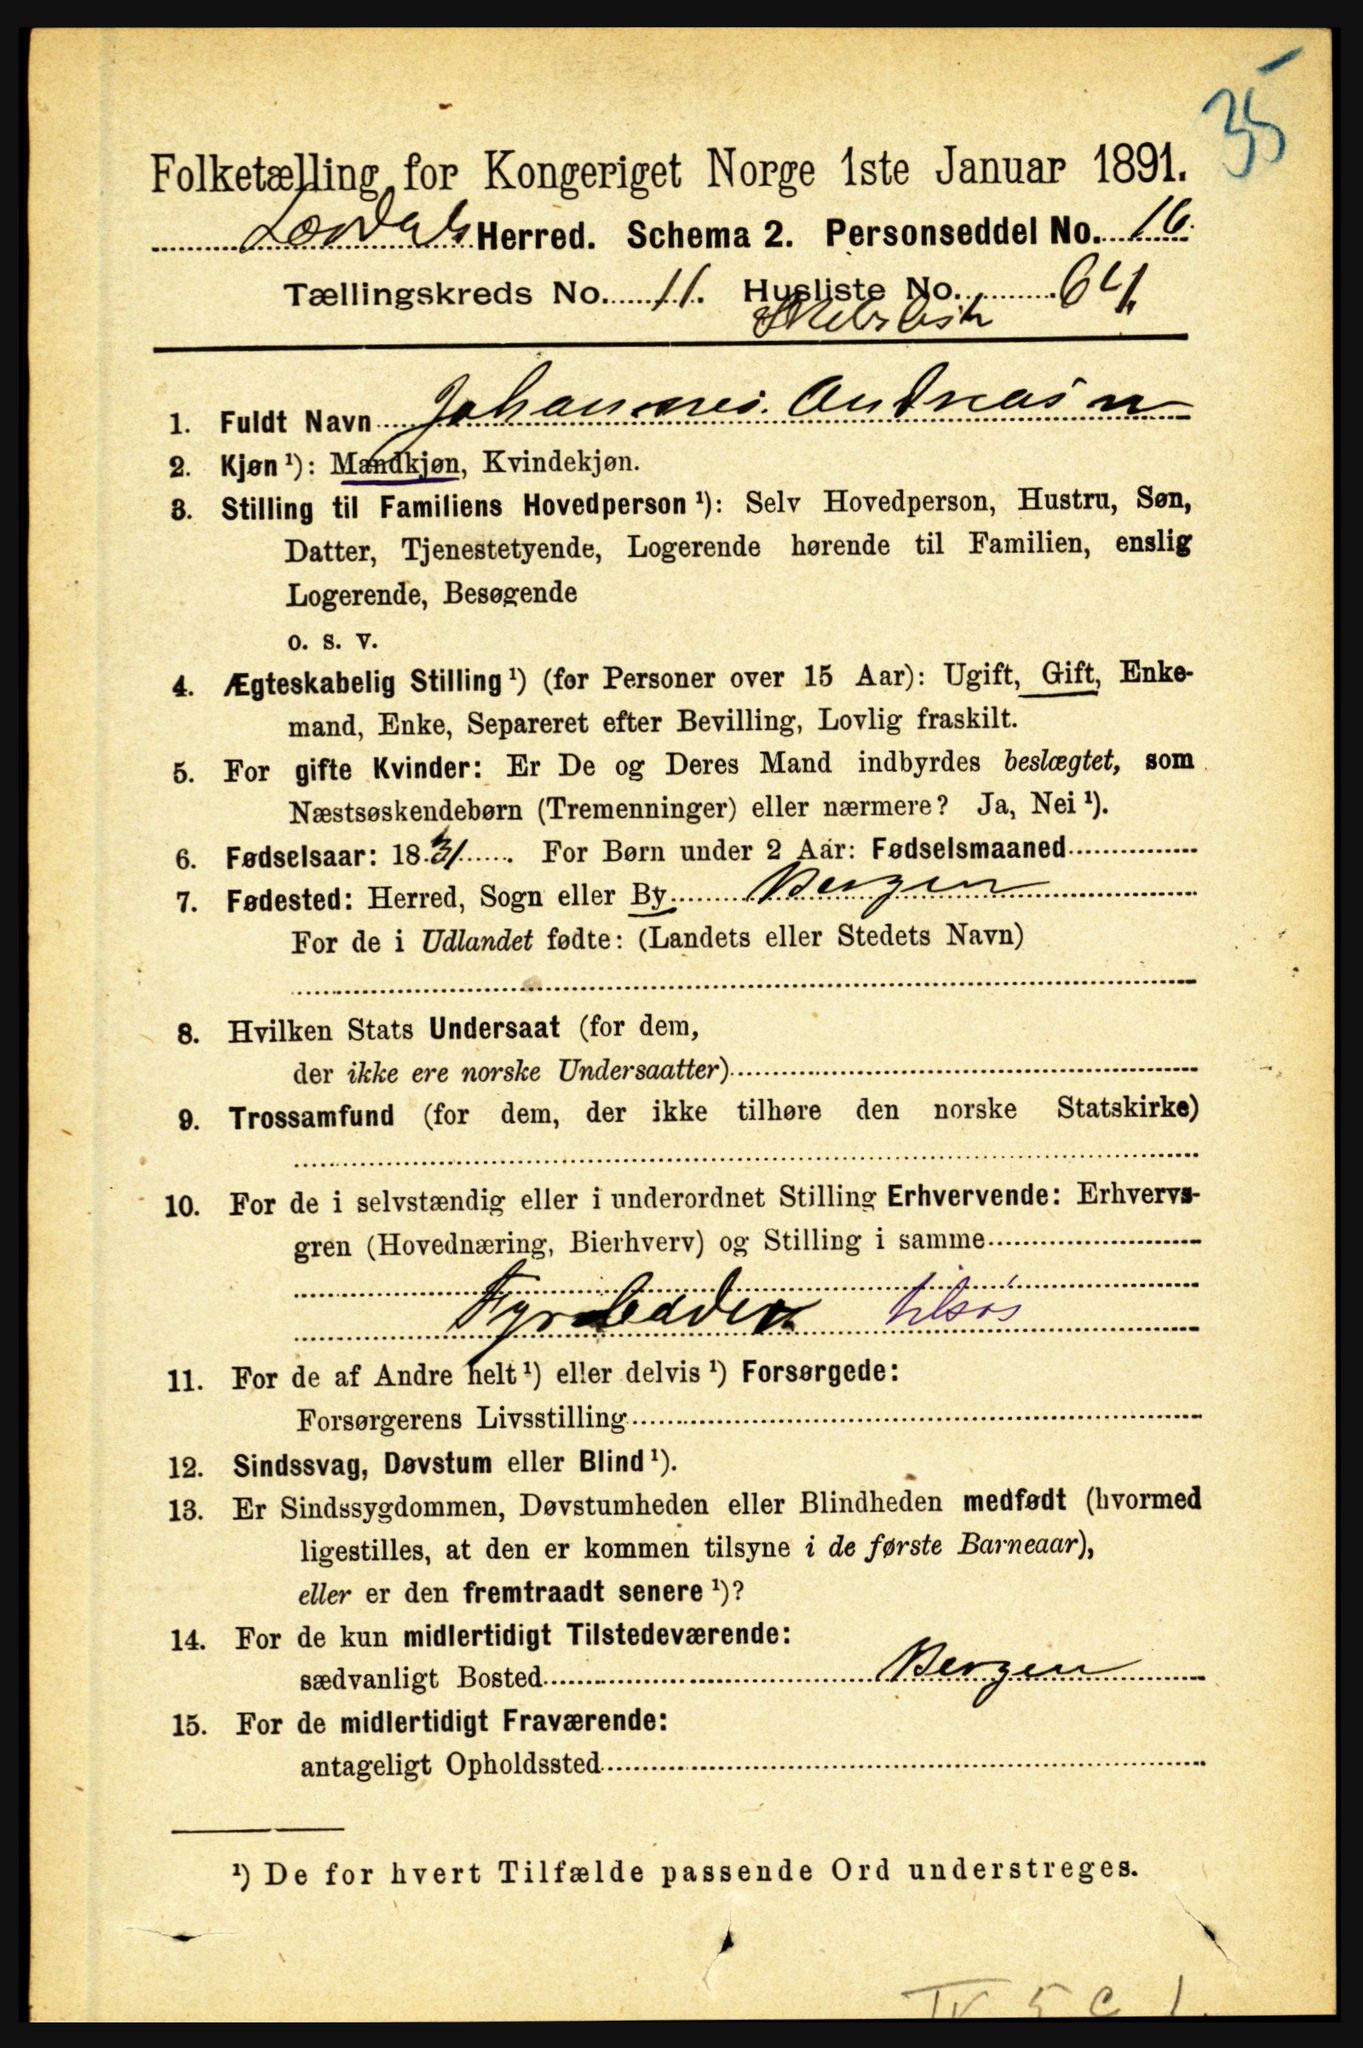 35
Folketælling for Kongeriget Norge 1ste Januar 1891.
Lærdals Herred. Schema 2. Personseddel No. 16.
Tællingskreds No. 11. Husliste No. 64.
1. Fuldt Navn Johannes Andreasn
2. Kjøn ¹): Mandkjøn, Kvindekjøn.
3. Stilling til Familiens Hovedperson ¹): Selv Hovedperson, Hustru, Søn,
Datter, Tjenestetyende, Logerende hørende til Familien, enslig
Logerende, Besøgende
o. s. v.
4. Ægteskabelig Stilling ¹) (for Personer over 15 Aar): Ugift, Gift, Enke-
mand, Enke, Separeret efter Bevilling, Lovlig fraskilt.
5. For gifte Kvinder: Er De og Deres Mand indbyrdes beslægtet, som
Næstsøskendebørn (Tremenninger) eller nærmere? Ja, Nei ¹).
6. Fødselsaar: 1831. For Børn under 2 Aar: Fødselsmaaned
7. Fødested: Herred, Sogn eller By Bergen
For de i Udlandet fødte: (Landets eller Stedets Navn)
8. Hvilken Stats Undersaat (for dem,
der ikke ere norske Undersaatter)
9. Trossamfund (for dem, der ikke tilhøre den norske Statskirke)
10. For de i selvstændig eller i underordnet Stilling Erhvervende: Erhvervs-
gren (Hovednæring, Bierhverv) og Stilling i samme
Fyrbøder tilsøs
11. For de af Andre helt ¹) eller delvis ¹) Forsørgede:
Forsørgerens Livsstilling
12. Sindssvag, Døvstum eller Blind ¹).
13. Er Sindssygdommen, Døvstumheden eller Blindheden medfødt (hvormed
ligestilles, at den er kommen tilsyne i de første Barneaar),
eller er den fremtraadt senere ¹)?
14. For de kun midlertidigt Tilstedeværende:
sædvanligt Bosted Bergen
15. For de midlertidigt Fraværende:
antageligt Opholdssted
¹) De for hvert Tilfælde passende Ord understreges.